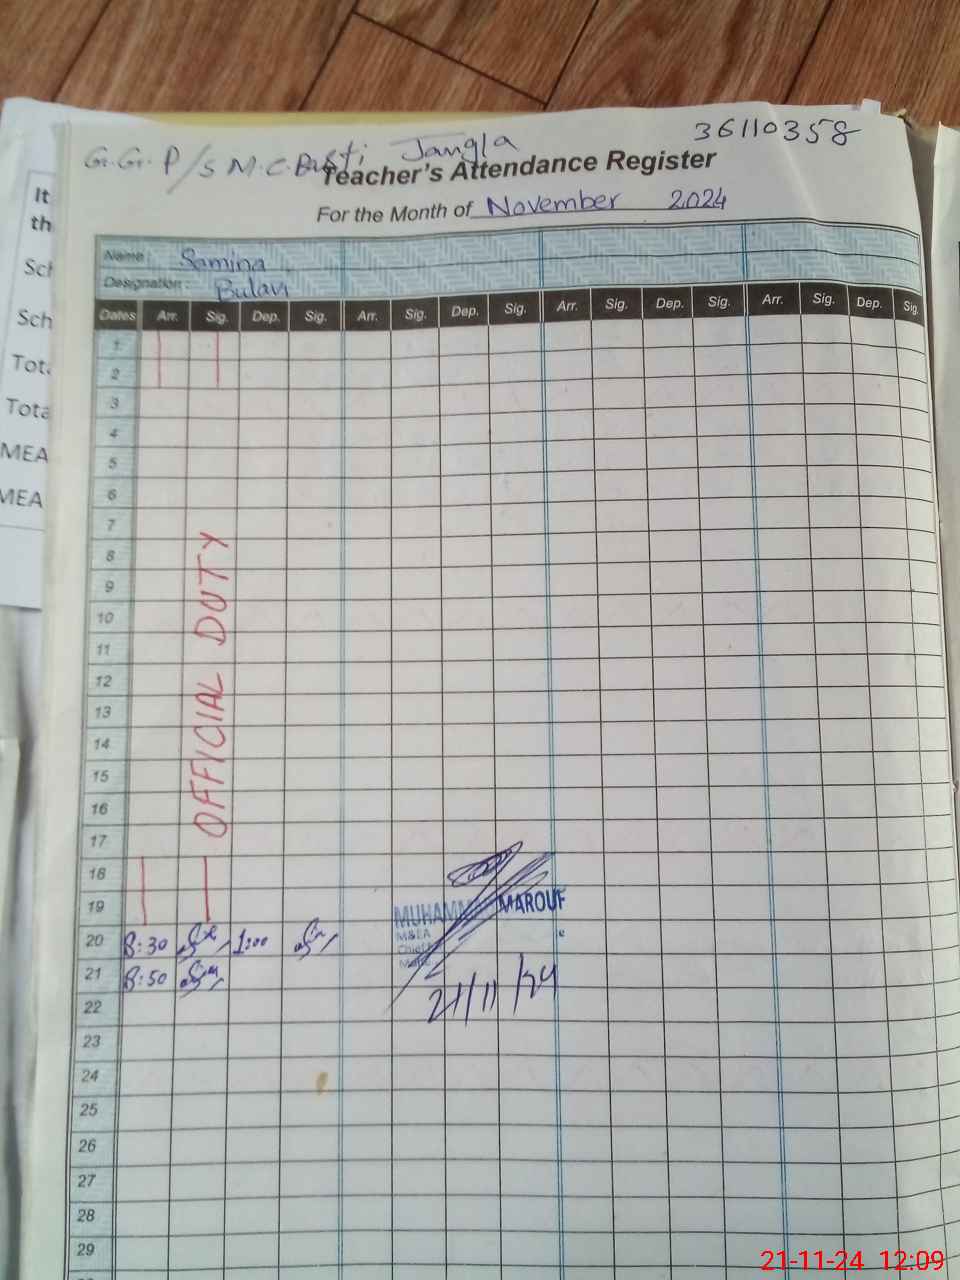 36110358
G.G. P/S M.C. Basti Jangla
Teacher's Attendance Register
For the Month of November 2024
Name: Samina
Designation:
Dates Arr. Sig. Dep. Sig. Arr. Sig. Dep. Sig. Arr. Sig. Dep. Sig. Arr. Sig. Dep. Sig.
1
2
3
4
5
6
7
8
9
10
11
12
13
14
15
16
17
OFFICIAL DUTY
18
19
20 8:30 1:00
21 8:50
MUHAMM MAROUF
M&EA
21/11/24
22
23
24
25
26
27
28
29
It
th
Sch
Sch
Tota
Tota
MEA
MEA
21-11-24 12:09